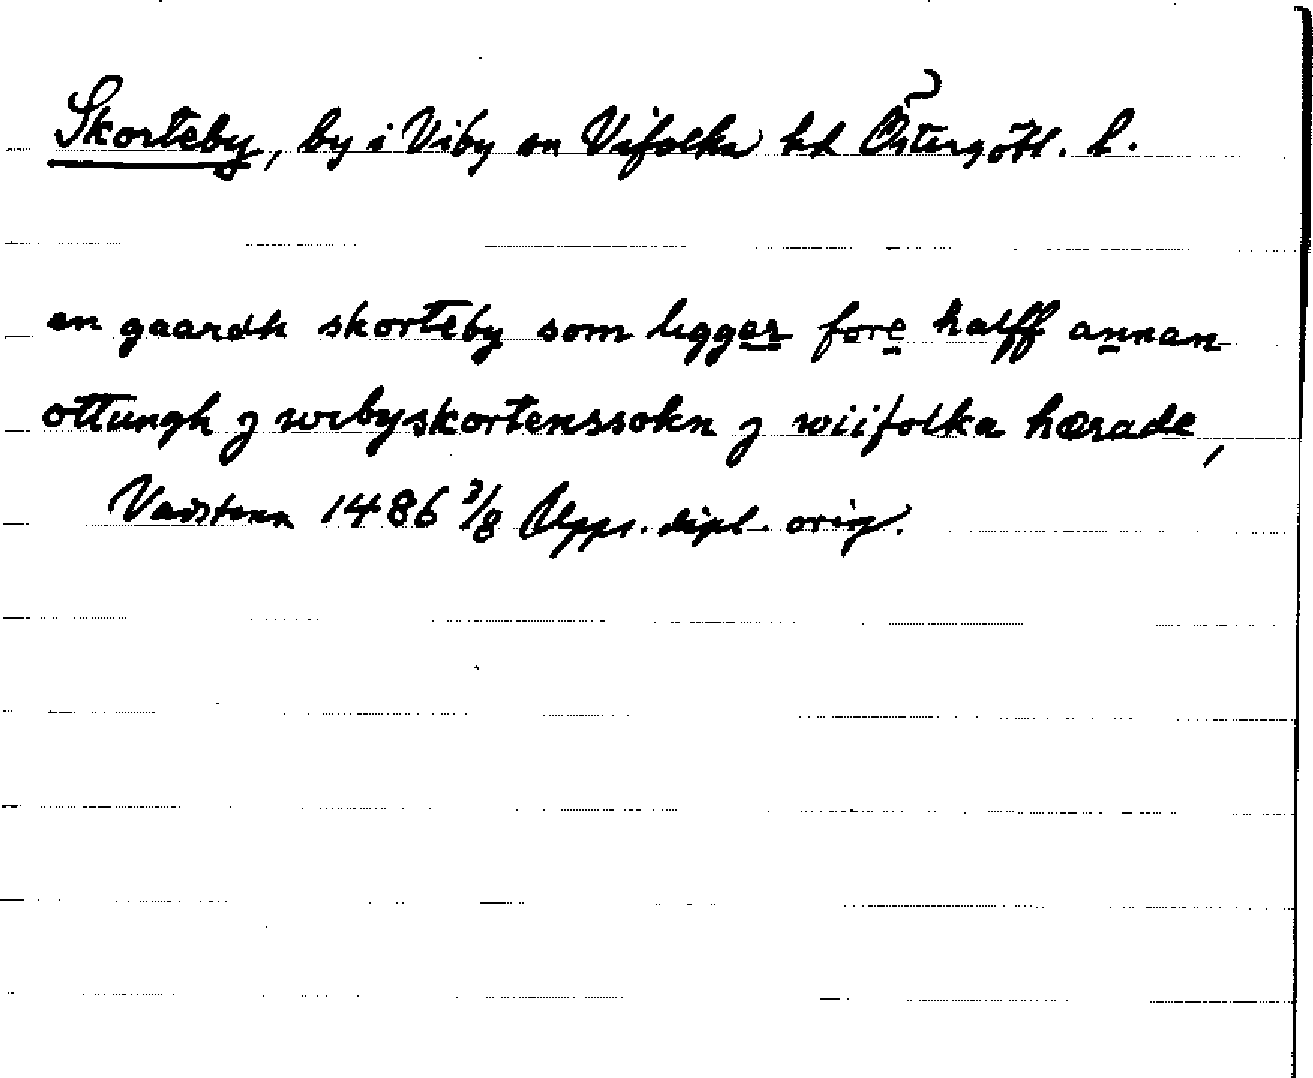 Skorteby, by i Viby sn Vifolka hd Östergötl. l.
en gaardh skorteby som ligger fore halff annan
ottungh j wibyskortenssokn j wiifolka hærade,
Vadstena 1486 3/8 Upps. dipl. orig.